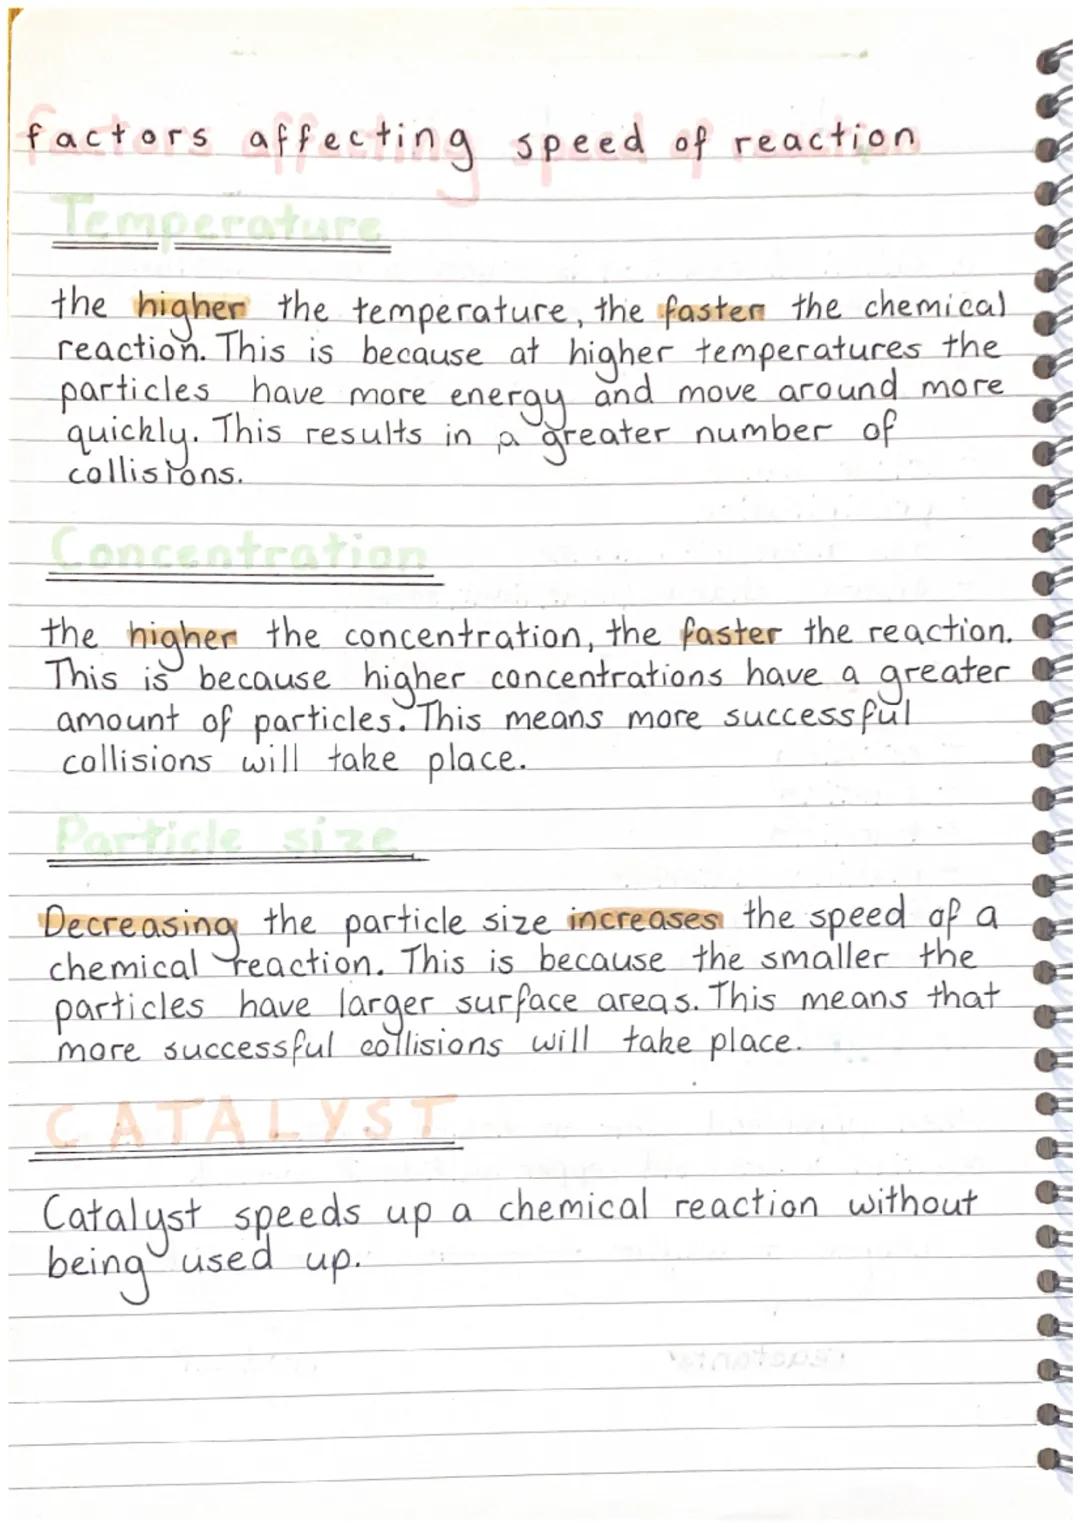 factors affecting speed of reaction
Temperature
the higher the temperature, the faster the chemical
reaction. This is because at higher temperatures the
particles have more energy and move around more
quickly. This results in a greater number of
collisions.
Concentration
the higher the concentration, the faster the reaction.
This is because higher concentrations have a greater
amount of particles. This means more successful
collisions will take place.
Particle size
Decreasing the particle size increases the speed of a
chemical reaction. This is because the smaller the
particles have larger surface areas. This means that
more successful collisions will take place.
CATALYST
Catalyst speeds up a chemical reaction without
being used up.